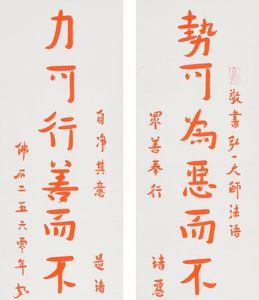 勢可為惡而不
敬書弘一大師法語
眾善奉行
諸惡
力可行善而不
自净其意
是諸
佛历二五六零年